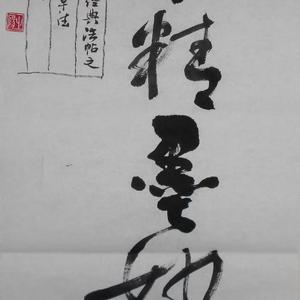 精墨妙
經典法帖之